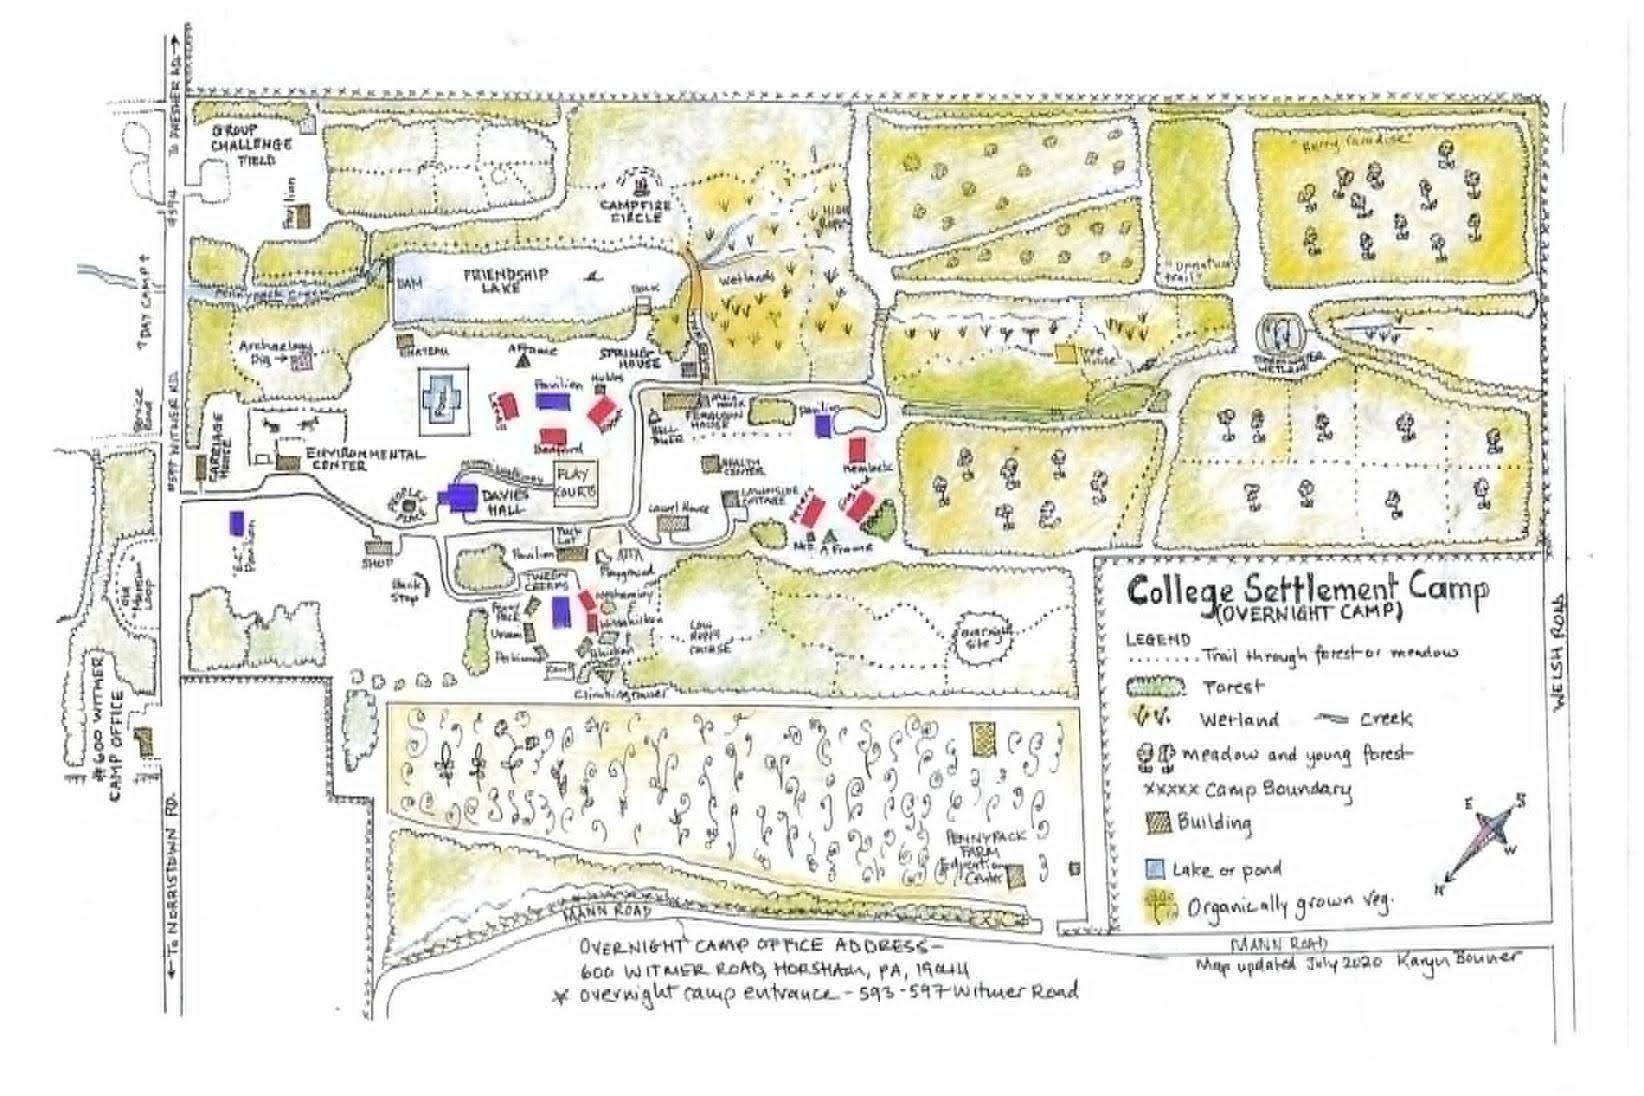 TO DRESHER RD.
GROUP
CHALLENGE
FIELD
Pavilion
#594
DAY CAMP
CAMPFIRE
CIRCLE
HIGH
ROPES
"Berry Paradise"
"Unnatural
trail"
Pennypack Creek
DAM
FRIENDSHIP
LAKE
Dock
Wetlands
Archaeology
Dig
CHATEAU
A Frame
SPRING
HOUSE
Tree
House
STORMWATER
WETLAND
#597 WITMER RD.
CARRIAGE
HOUSE
ENVIRONMENTAL
CENTER
Pavilion
Hobbs
Bedford
MAIN HOUSE
FERGUSON
HOUSE
BELL
TOWER
Pavilion
Hemlock
HEALTH
CENTER
LAWNSIDE
COTTAGE
Laurel House
PLAY
COURTS
DAVIES
HALL
PEOPLE
PLACE
A Frame
"E.C."
Pavilion
SHOP
Pavilion
Playground
TWEEN
CREEKS
Neshaminy
Wissahickon
Penny
Pack
Perkiomen
Climbing tower
LOW
ROPES
COURSE
overnight
site
#600 WITMER
CAMP OFFICE
TO NORRISTOWN RD.
PENNYPACK
FARM
Education
Center
MANN ROAD
OVERNIGHT CAMP OFFICE ADDRESS-
600 WITMER ROAD, HORSHAM, PA, 19044
* overnight camp entrance - 593-597 Witmer Road
College Settlement Camp
(OVERNIGHT CAMP)
LEGEND
Trail through forest or meadow
Forest
Wetland Creek
meadow and young forest
xxxxx Camp Boundary
Building
Lake or pond
Organically grown veg.
E S
N W
WELSH ROAD
MANN ROAD
Map updated July 2020 Karyn Bonner